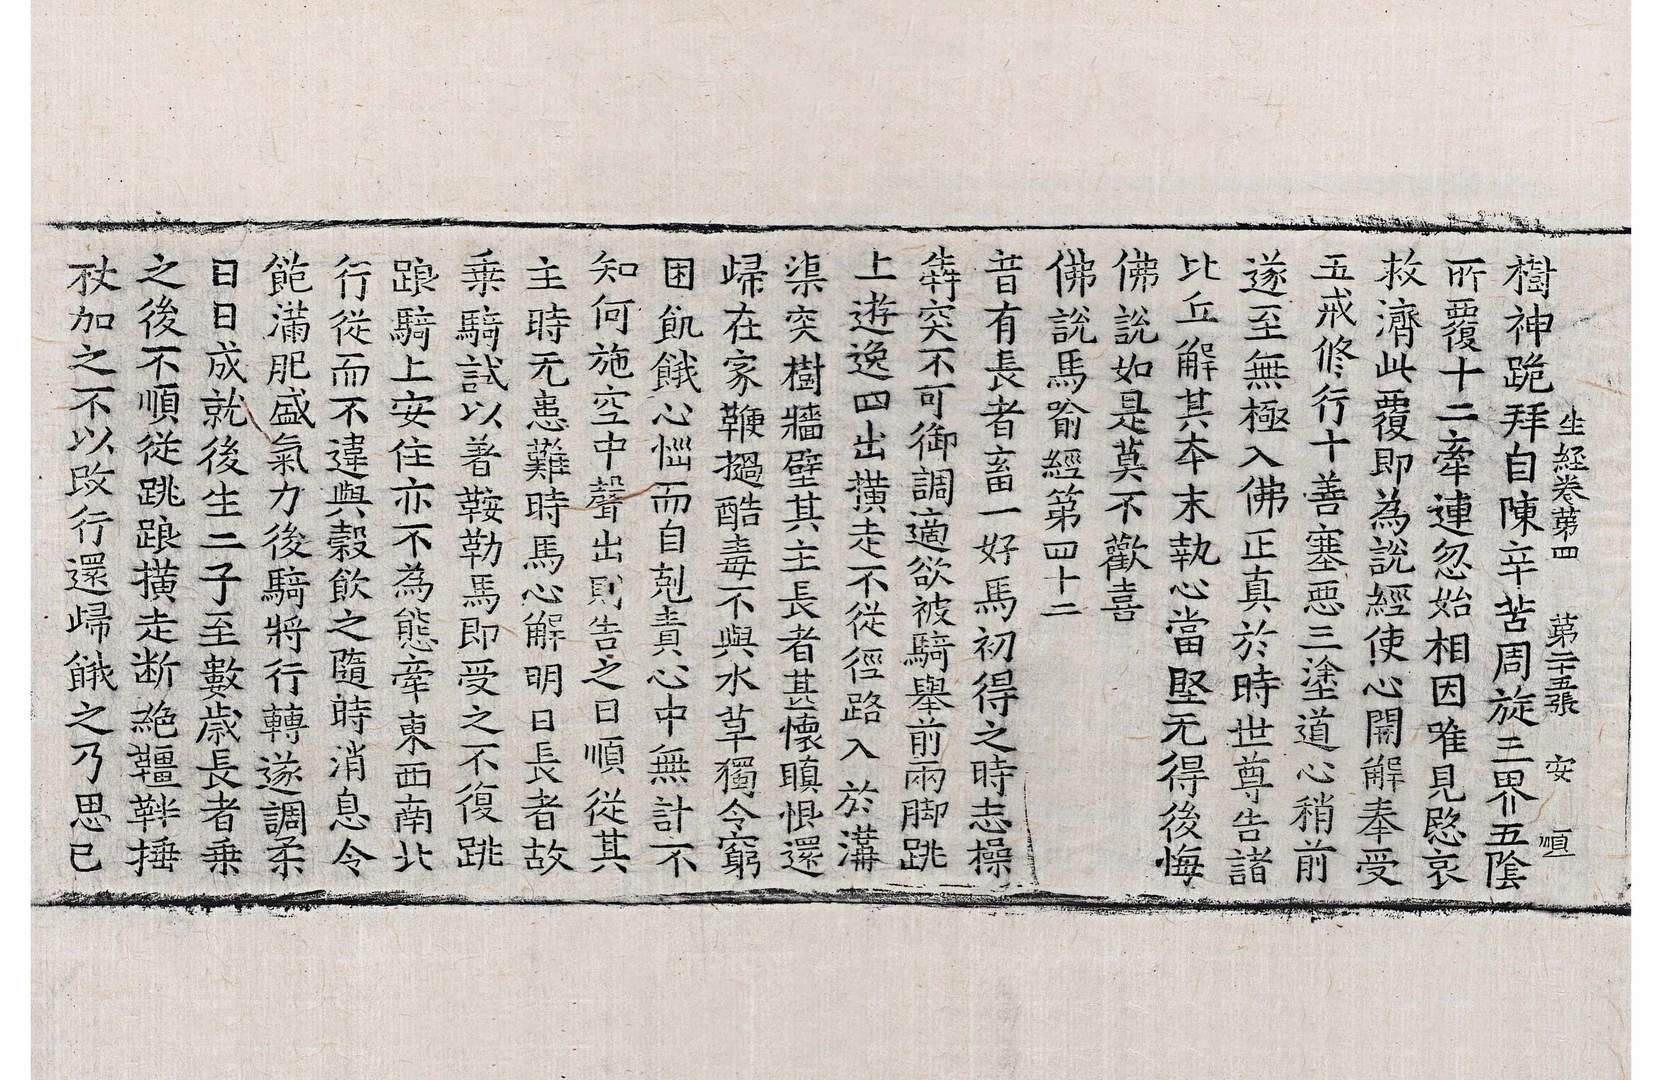 生經卷第四 第二十五張 安 順
樹神跪拜自陳辛苦周旋三界五陰
所覆十二牽連忽始相因唯見愍哀
救濟此覆即為說經使心開解奉受
五戒修行十善塞惡三塗道心稍前
遂至無極入佛正真於時世尊告諸
比丘解其本末執心當堅无得後悔
佛說如是莫不歡喜
佛說馬喻經第四十二
昔有長者畜一好馬初得之時志操
犇突不可御調適欲被騎舉前兩脚跳
上遊逸四出擴走不從徑路入於溝
渠突樹牆壁其主長者甚懷瞋惧還
歸在家鞭撾酷毒不與水草獨令窮
困飢餓心惱而自剋責心中無計不
知何施空中聲出則告之曰順從其
主時无恚難時馬心解明日長者故
乘騎試以著鞍勒馬即受之不復跳
踉騎上安住亦不為態牽東西南北
行從而不違與穀飲之隨時消息令
飽滿肥盛氣力後騎將行轉遂調柔
日日成就後生二子至數歲長者乘
之後不順從跳踉擴走断絶韁靽捶
杖加之不以改行還歸餓之乃思已